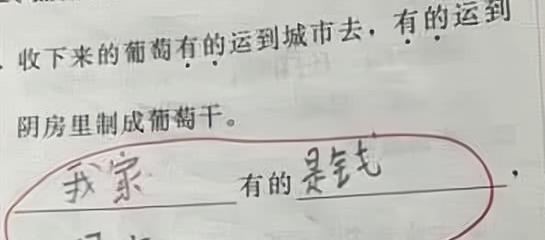 收下来的葡萄有的运到城市去，有的运到
阴房里制成葡萄干。
我家有的是钱，